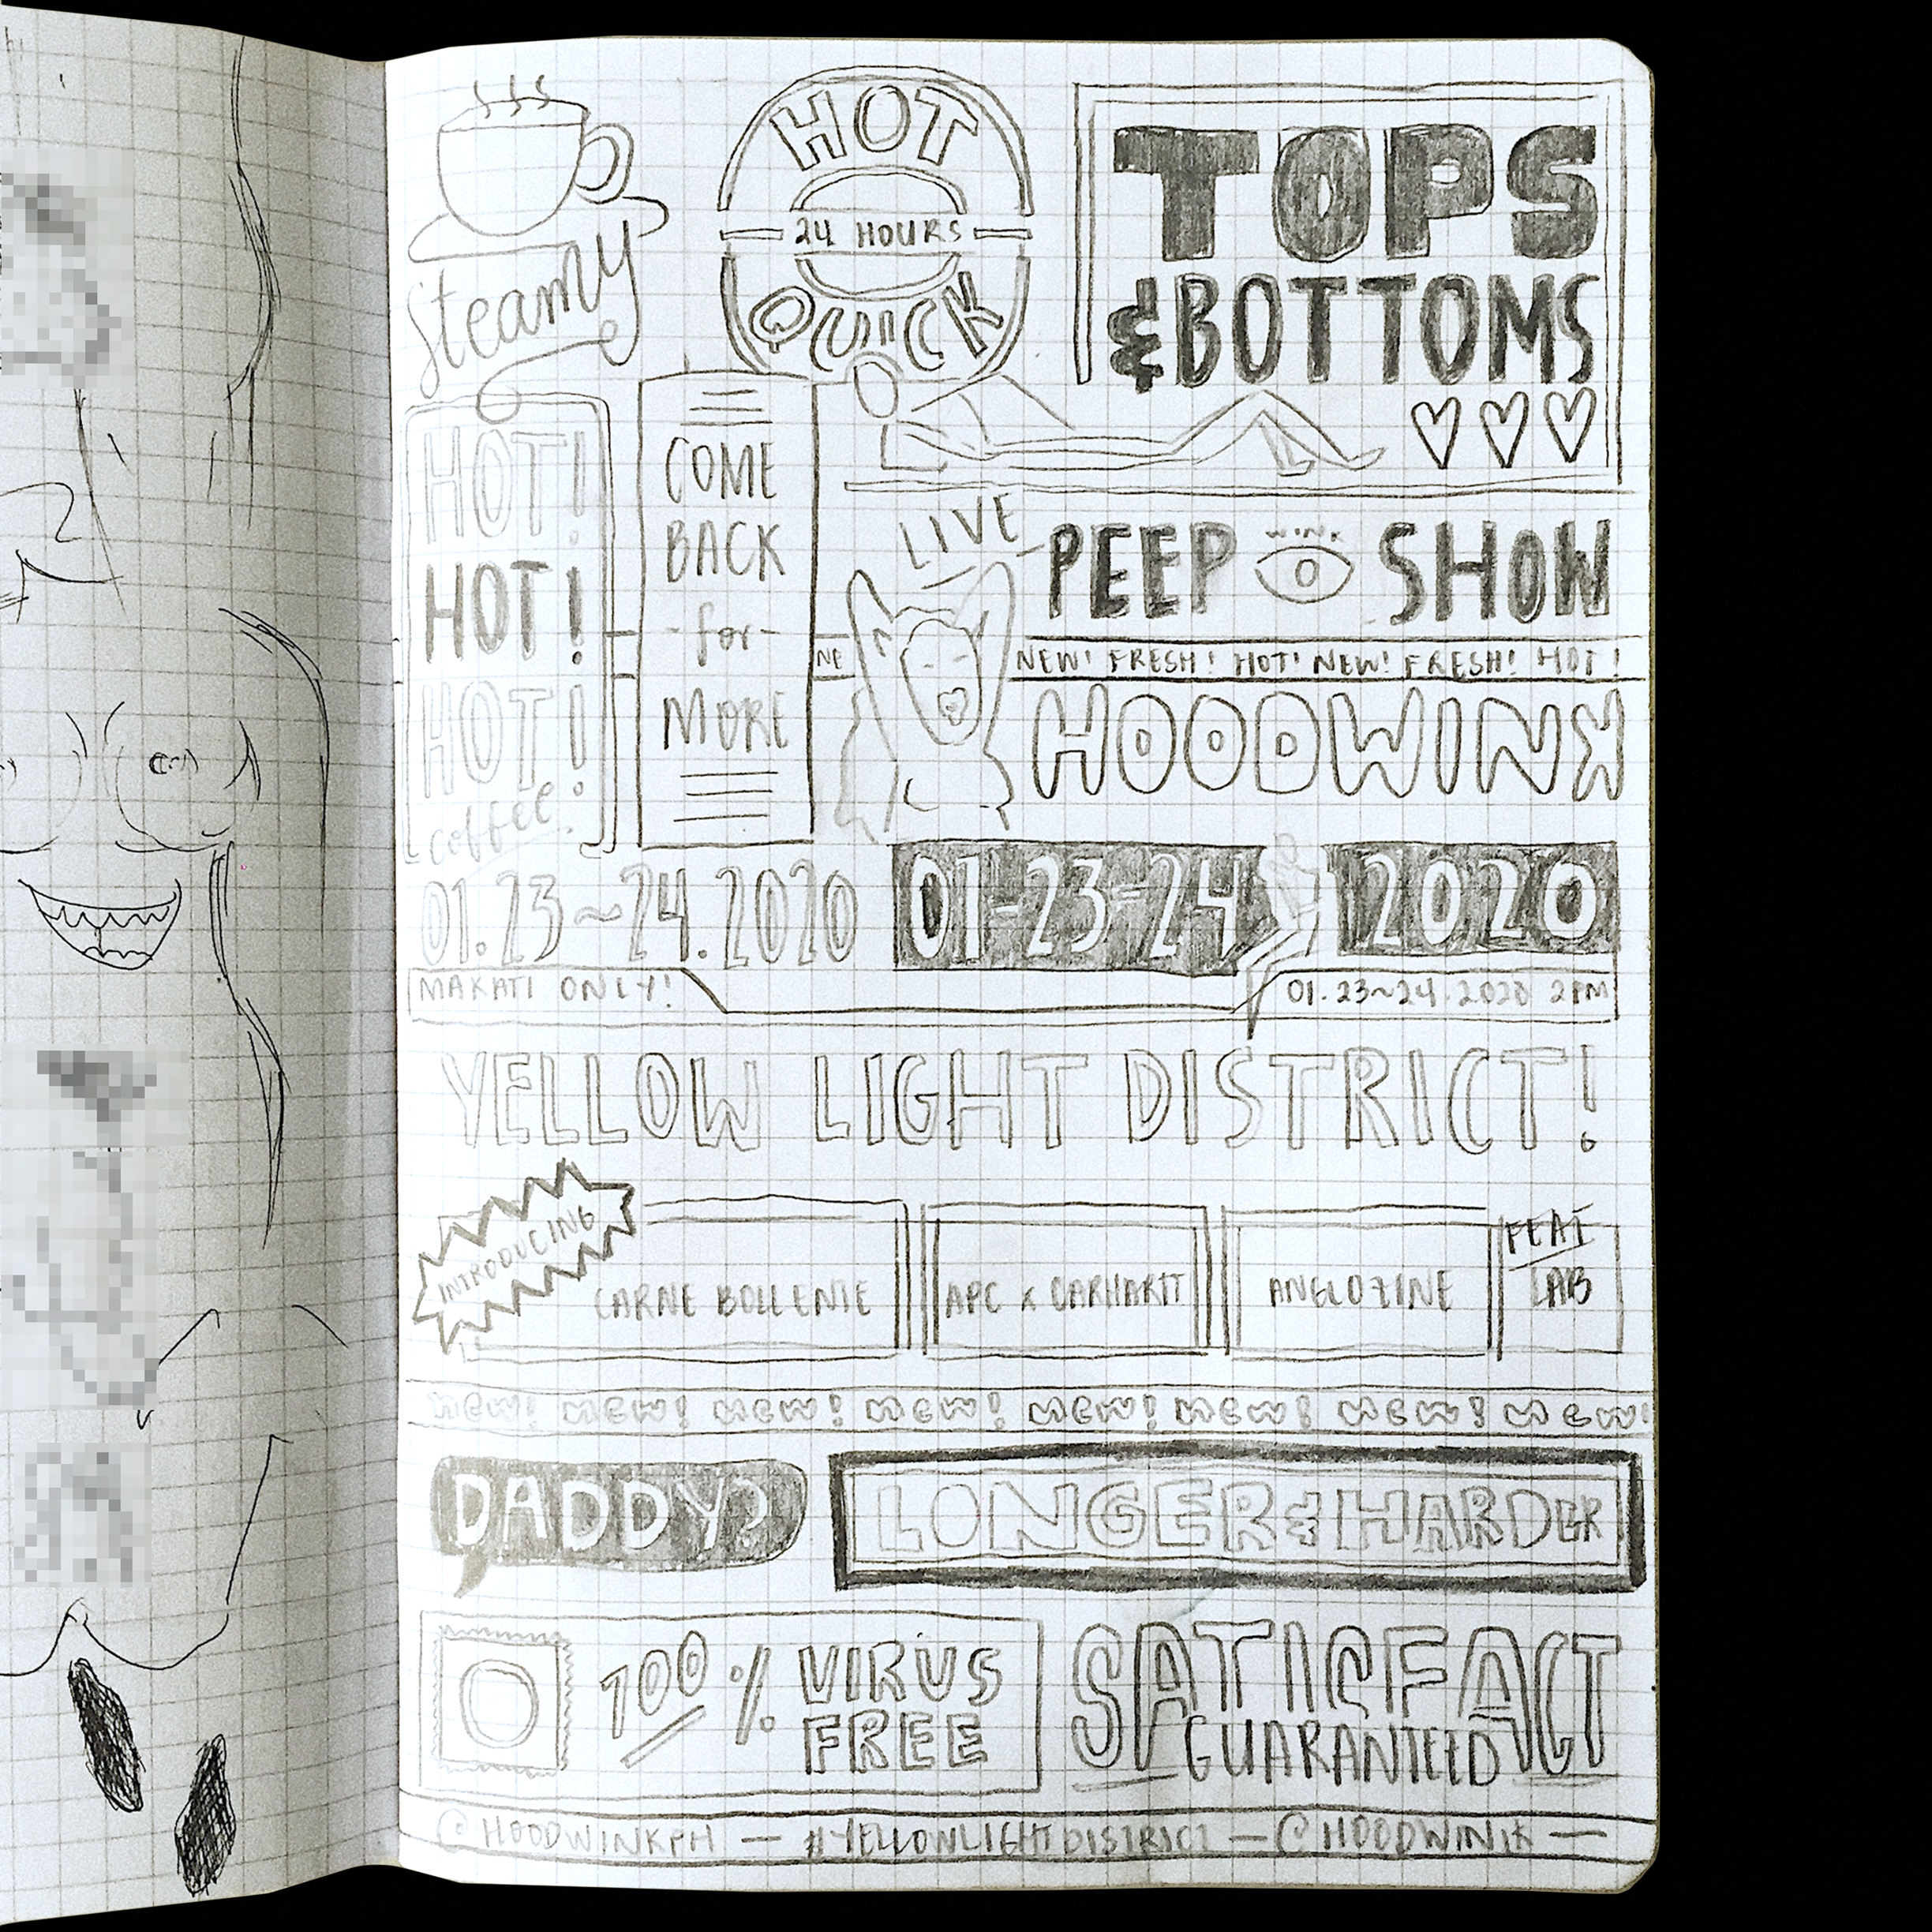 HOT
24 HOURS
QUICK
Steamy
TOPS
& BOTTOMS
HOT!
HOT!
HOT!
coffee
COME
BACK
-for-
MORE
LIVE
PEEP SHOW
WINK
NE
NEW! FRESH! HOT! NEW! FRESH! HOT!
HOODWINK
01.23~24.2020
01-23-24 2020
MAKATI ONLY!
01.23~24.2020 2PM
YELLOW LIGHT DISTRICT!
INTRODUCING
CARNE BOLLENTE
APC x CARHARTT
ANGLOZINE
FEAT
LAB
new! new! new! new! new! new! new! new!
DADDY?
LONGER & HARDER
100% VIRUS
FREE
SATISFACT
GUARANTEED
@HOODWINKPH — #YELLOWLIGHTDISTRICT — @HOODWINK —